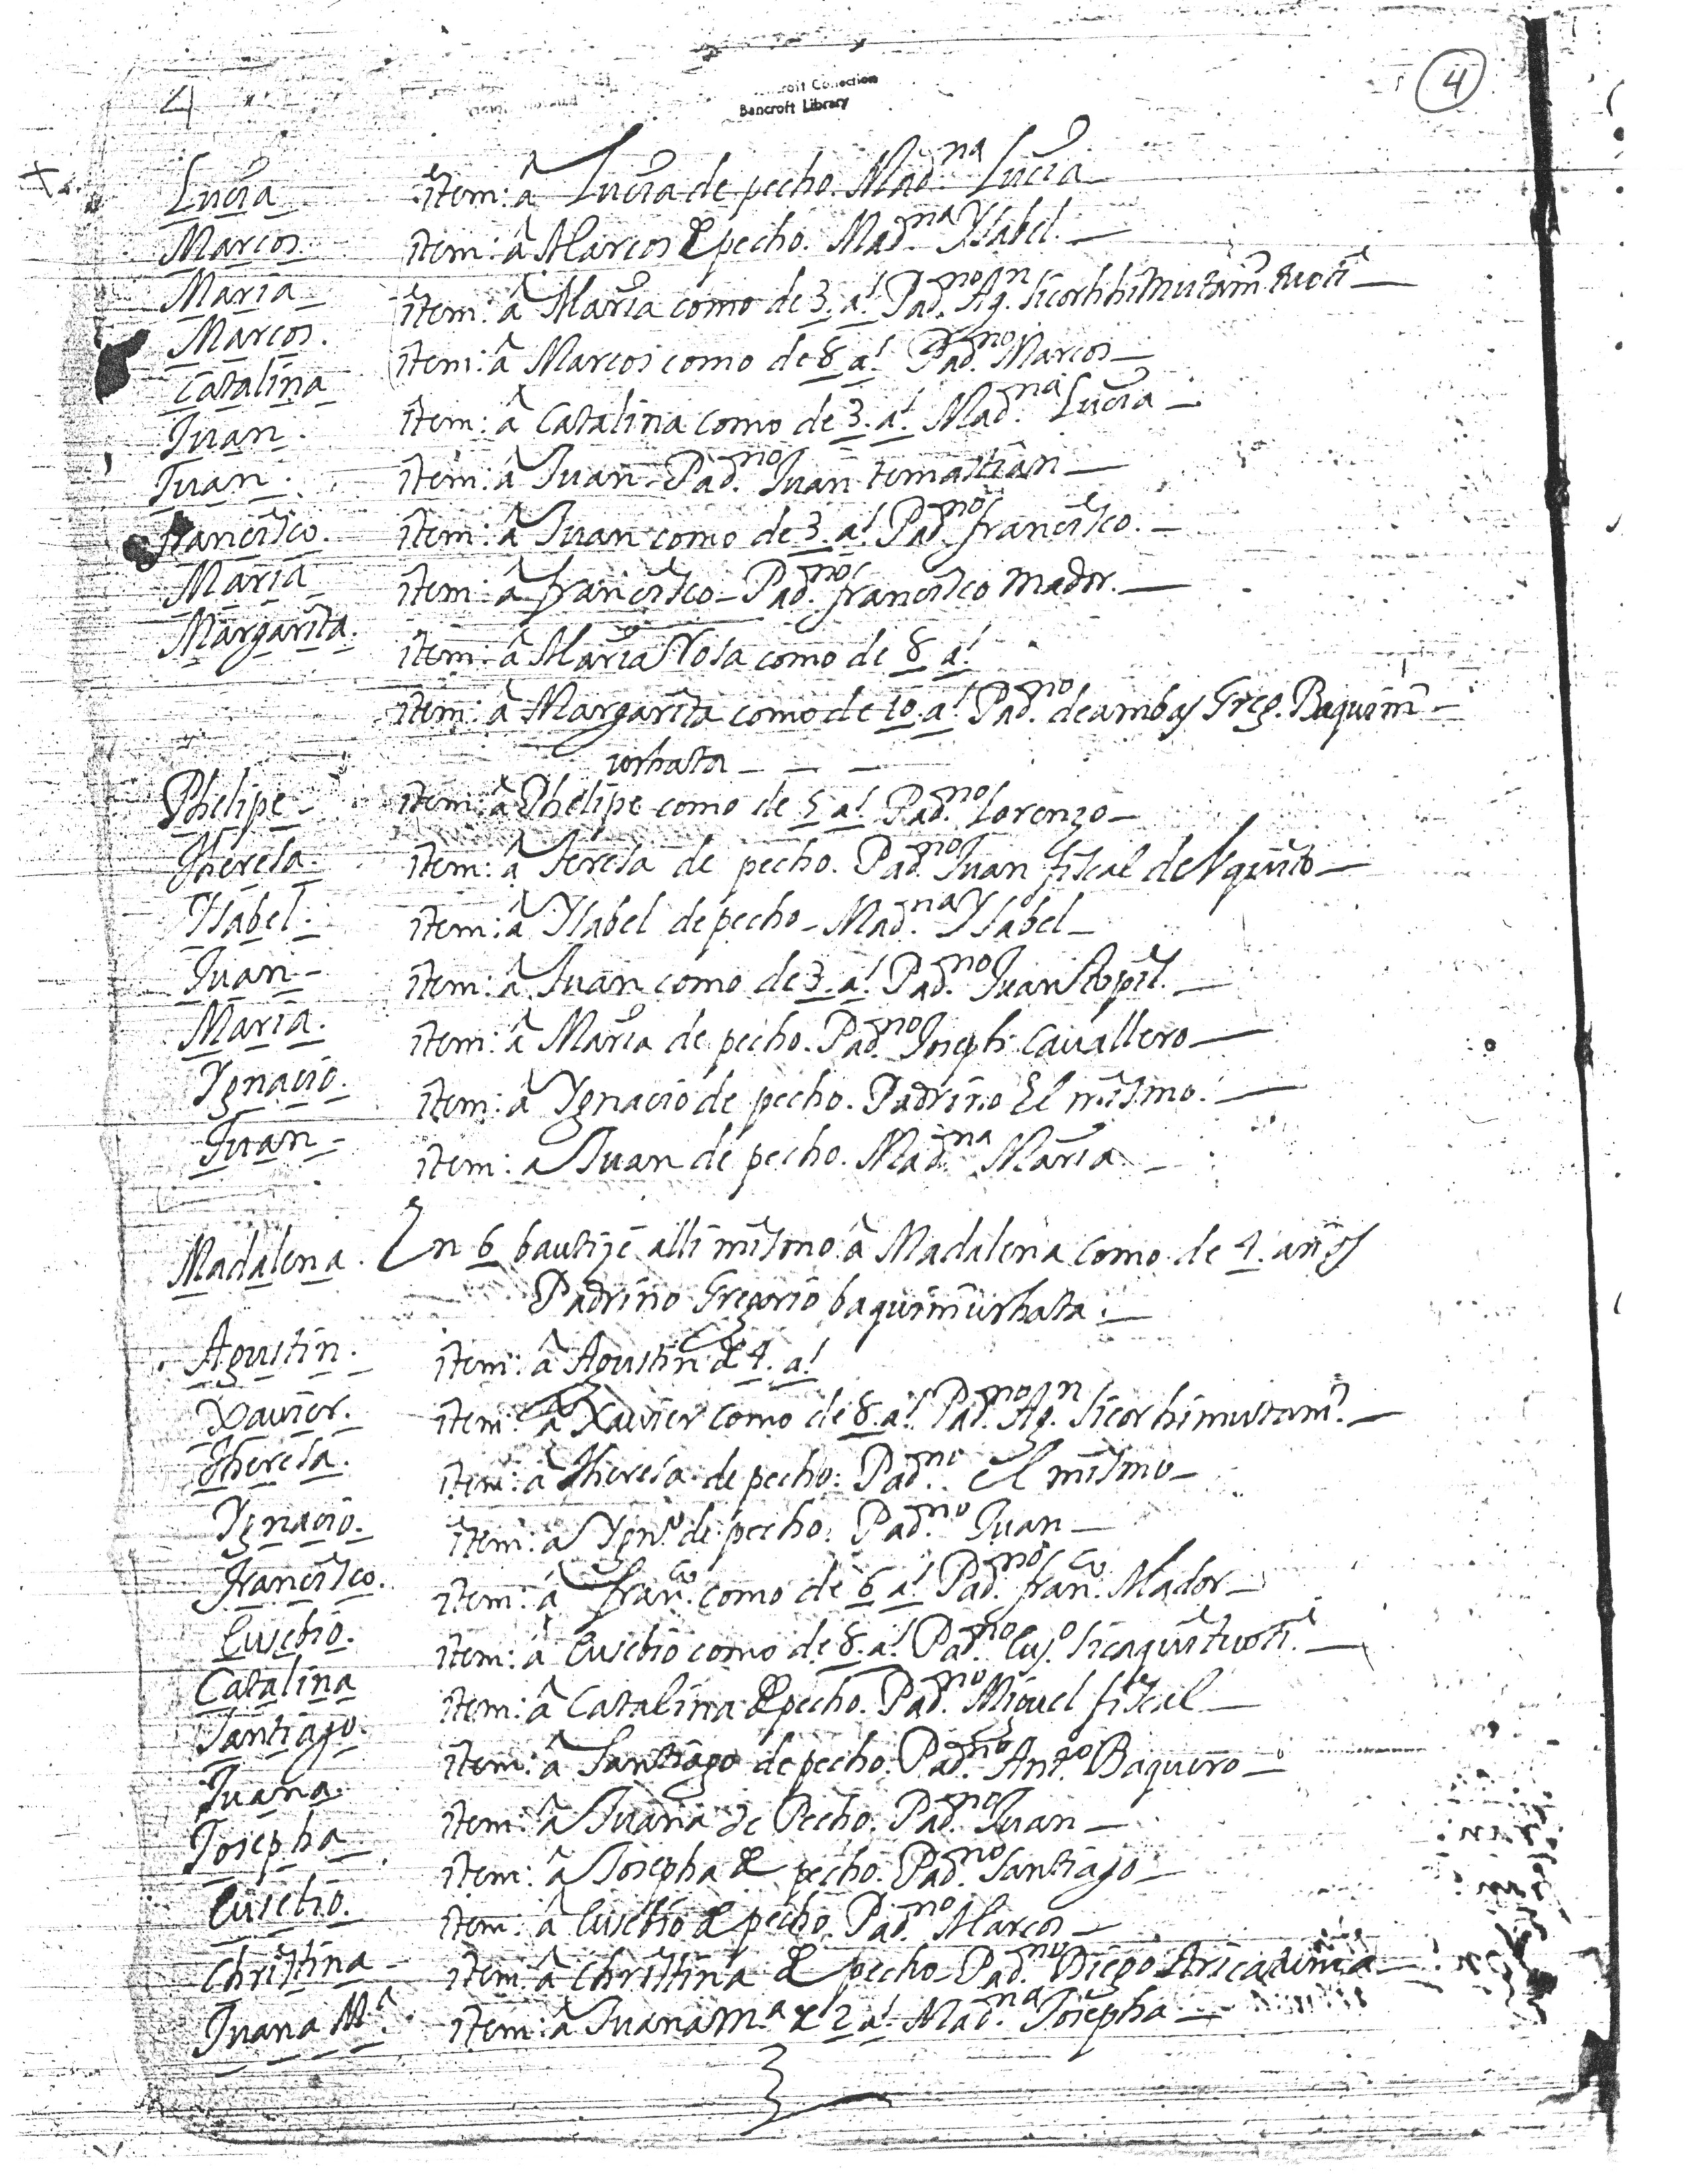 4
Bancroft Library
4
Lucia item: â Lucia de pecho. Mad.na Lucia
Marcos item: â Marcos de pecho. Mad.na Ysabel.
Maria item: â Maria como de 3. a.s Pad.no Ag.n
Marcos. item: â Marcos como de 8 a.s Pad.no Marcos
Catalina item: â Catalina como de 3. a.s Mad.na Lucia
Juan. item: â Juan. Pad.no Juan temastian
Juan. item: â Juan como de 3. a.s Pad.no francisco.
francisco. item: â francisco Pad.no francisco Mador.
Maria item: â Maria Rosa como de 8 a.s
Margarita. item: â Margarita como de 10. a.s Pad.no de ambas Greg. Baquim
urhata
Phelipe item: â Phelipe como de 5 a.s Pad.no Lorenzo
Theresa. item: â Teresa de pecho. Pad.no Juan fiscal de
Ysabel. item: â Ysabel de pecho Mad.na Ysabel
Juan item: â Juan como de 3. a.s Pad.no Juan
Maria. item: â Maria de pecho. Pad.no Joseph Cavallero
Ygnacio. item: â Ygnacio de pecho. Padrino El mismo.
Juan item: a Juan de pecho. Mad.na Maria
Madalena. En 6 bautizê alli mismo â Madalena como de 4. años
Padrino Gregorio baquimurhata.
Agustin. item: â Agustin de 4. a.s
Xavier. item: â Xavier como de 8. a.s Pad.no Ag.n
Theresa. item: â Theresa de pecho. Pad.no el mismo
Ygnacio. item: â Ygn.o de pecho. Pad.no Juan
Francisco. item: â fran.co como de 6 a.s Pad.no fran.co Mador
Eusebio. item: â Eusebio como de 8. a.s Pad.no Eus.o
Catalina item: â Catalina de pecho. Pad.no Miguel fiscal
Santiago. item: â Santiago de pecho. Pad.no Ant.o Baquero
Juana. item: â Juana de Pecho. Pad.no Juan
Josepha item: â Josepha de pecho. Pad.no Santiago
Eusebio. item: â Eusebio de pecho. Pad.no Marcos
Christina item: â Christina de pecho Pad.no Diego
Juana M.a item: â Juana M.a de 2 a.s Mad.na Josepha